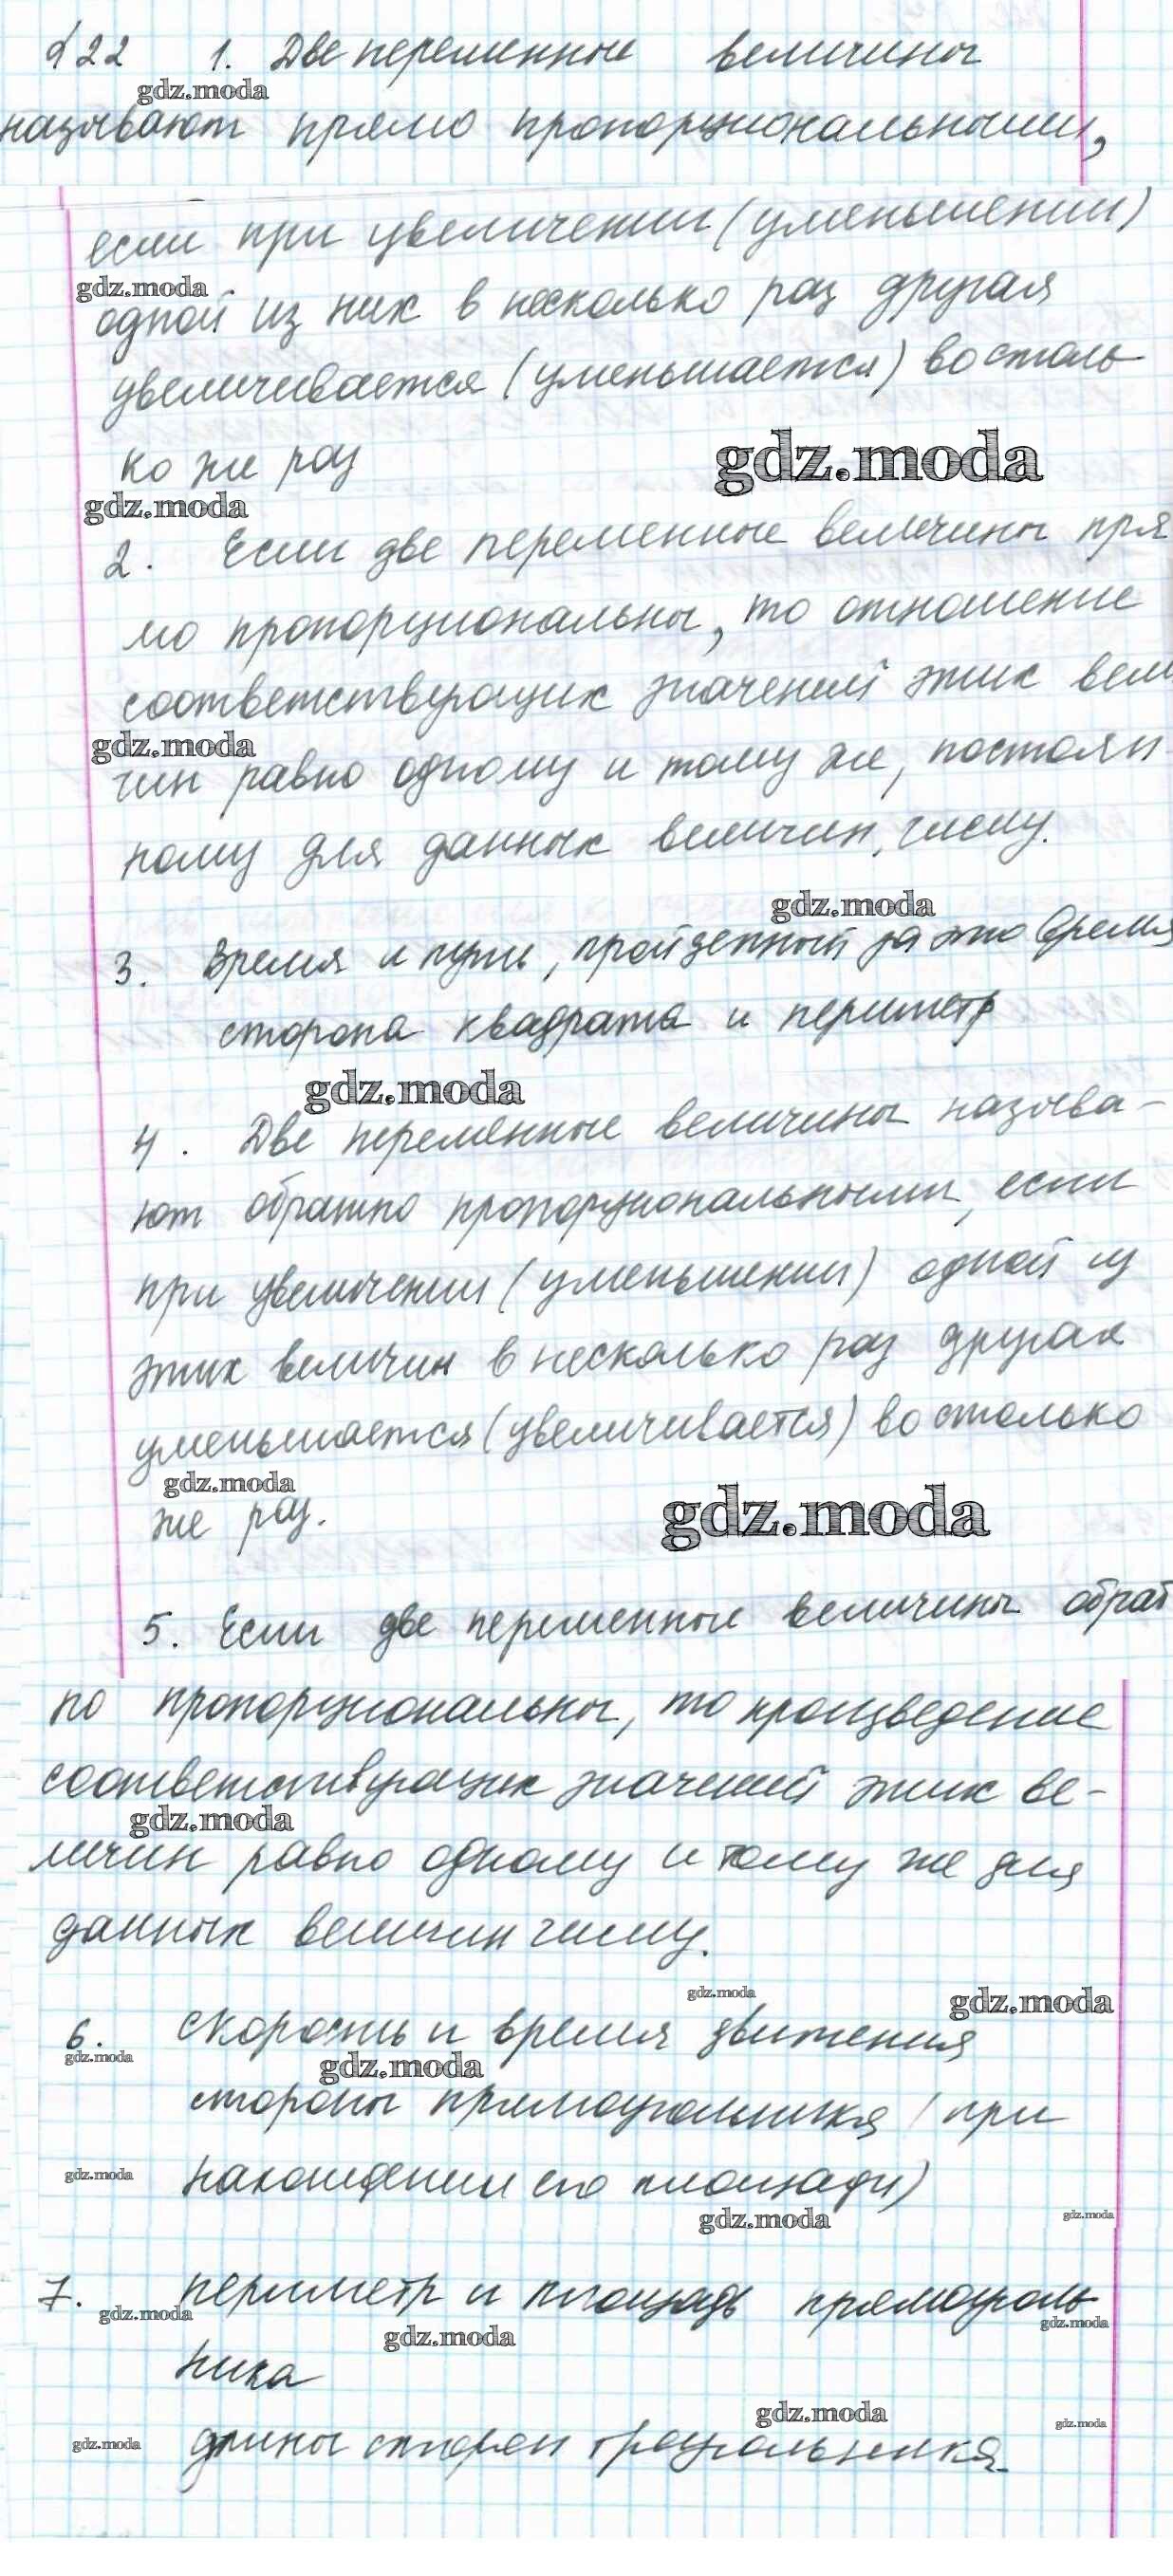 §22 1. Две переменные величины
gdz.moda
называют прямо пропорциональными,
если при увеличении (уменьшении)
gdz.moda
одной из них в несколько раз другая
увеличивается (уменьшается) во столь
ко же раз
gdz.moda
gdz.moda
2. Если две переменные величины пря
мо пропорциональны, то отношение
соответствующих значений этих вели
gdz.moda
чин равно одному и тому же, постоян
ному для данных величин, числу.
gdz.moda
3. Время и путь, пройденный за это время
сторона квадрата и периметр
gdz.moda
4. Две переменные величины называ-
ют обратно пропорциональными, если
при увеличении (уменьшении) одной из
этих величин в несколько раз другая
уменьшается (увеличивается) во столько
gdz.moda
же раз.
gdz.moda
5. Если две переменные величины обрат
но пропорциональны, то произведение
соответствующих значений этих ве-
gdz.moda
личин равно одному и тому же для
данных величин числу.
gdz.moda
gdz.moda
6. скорость и время движения
gdz.moda
gdz.moda
стороны прямоугольника (при
gdz.moda
нахождении его площади)
gdz.moda
gdz.moda
7. периметр и площадь прямоуголь
gdz.moda
gdz.moda
gdz.moda
ника
gdz.moda
gdz.moda
gdz.moda
длины сторон треугольника